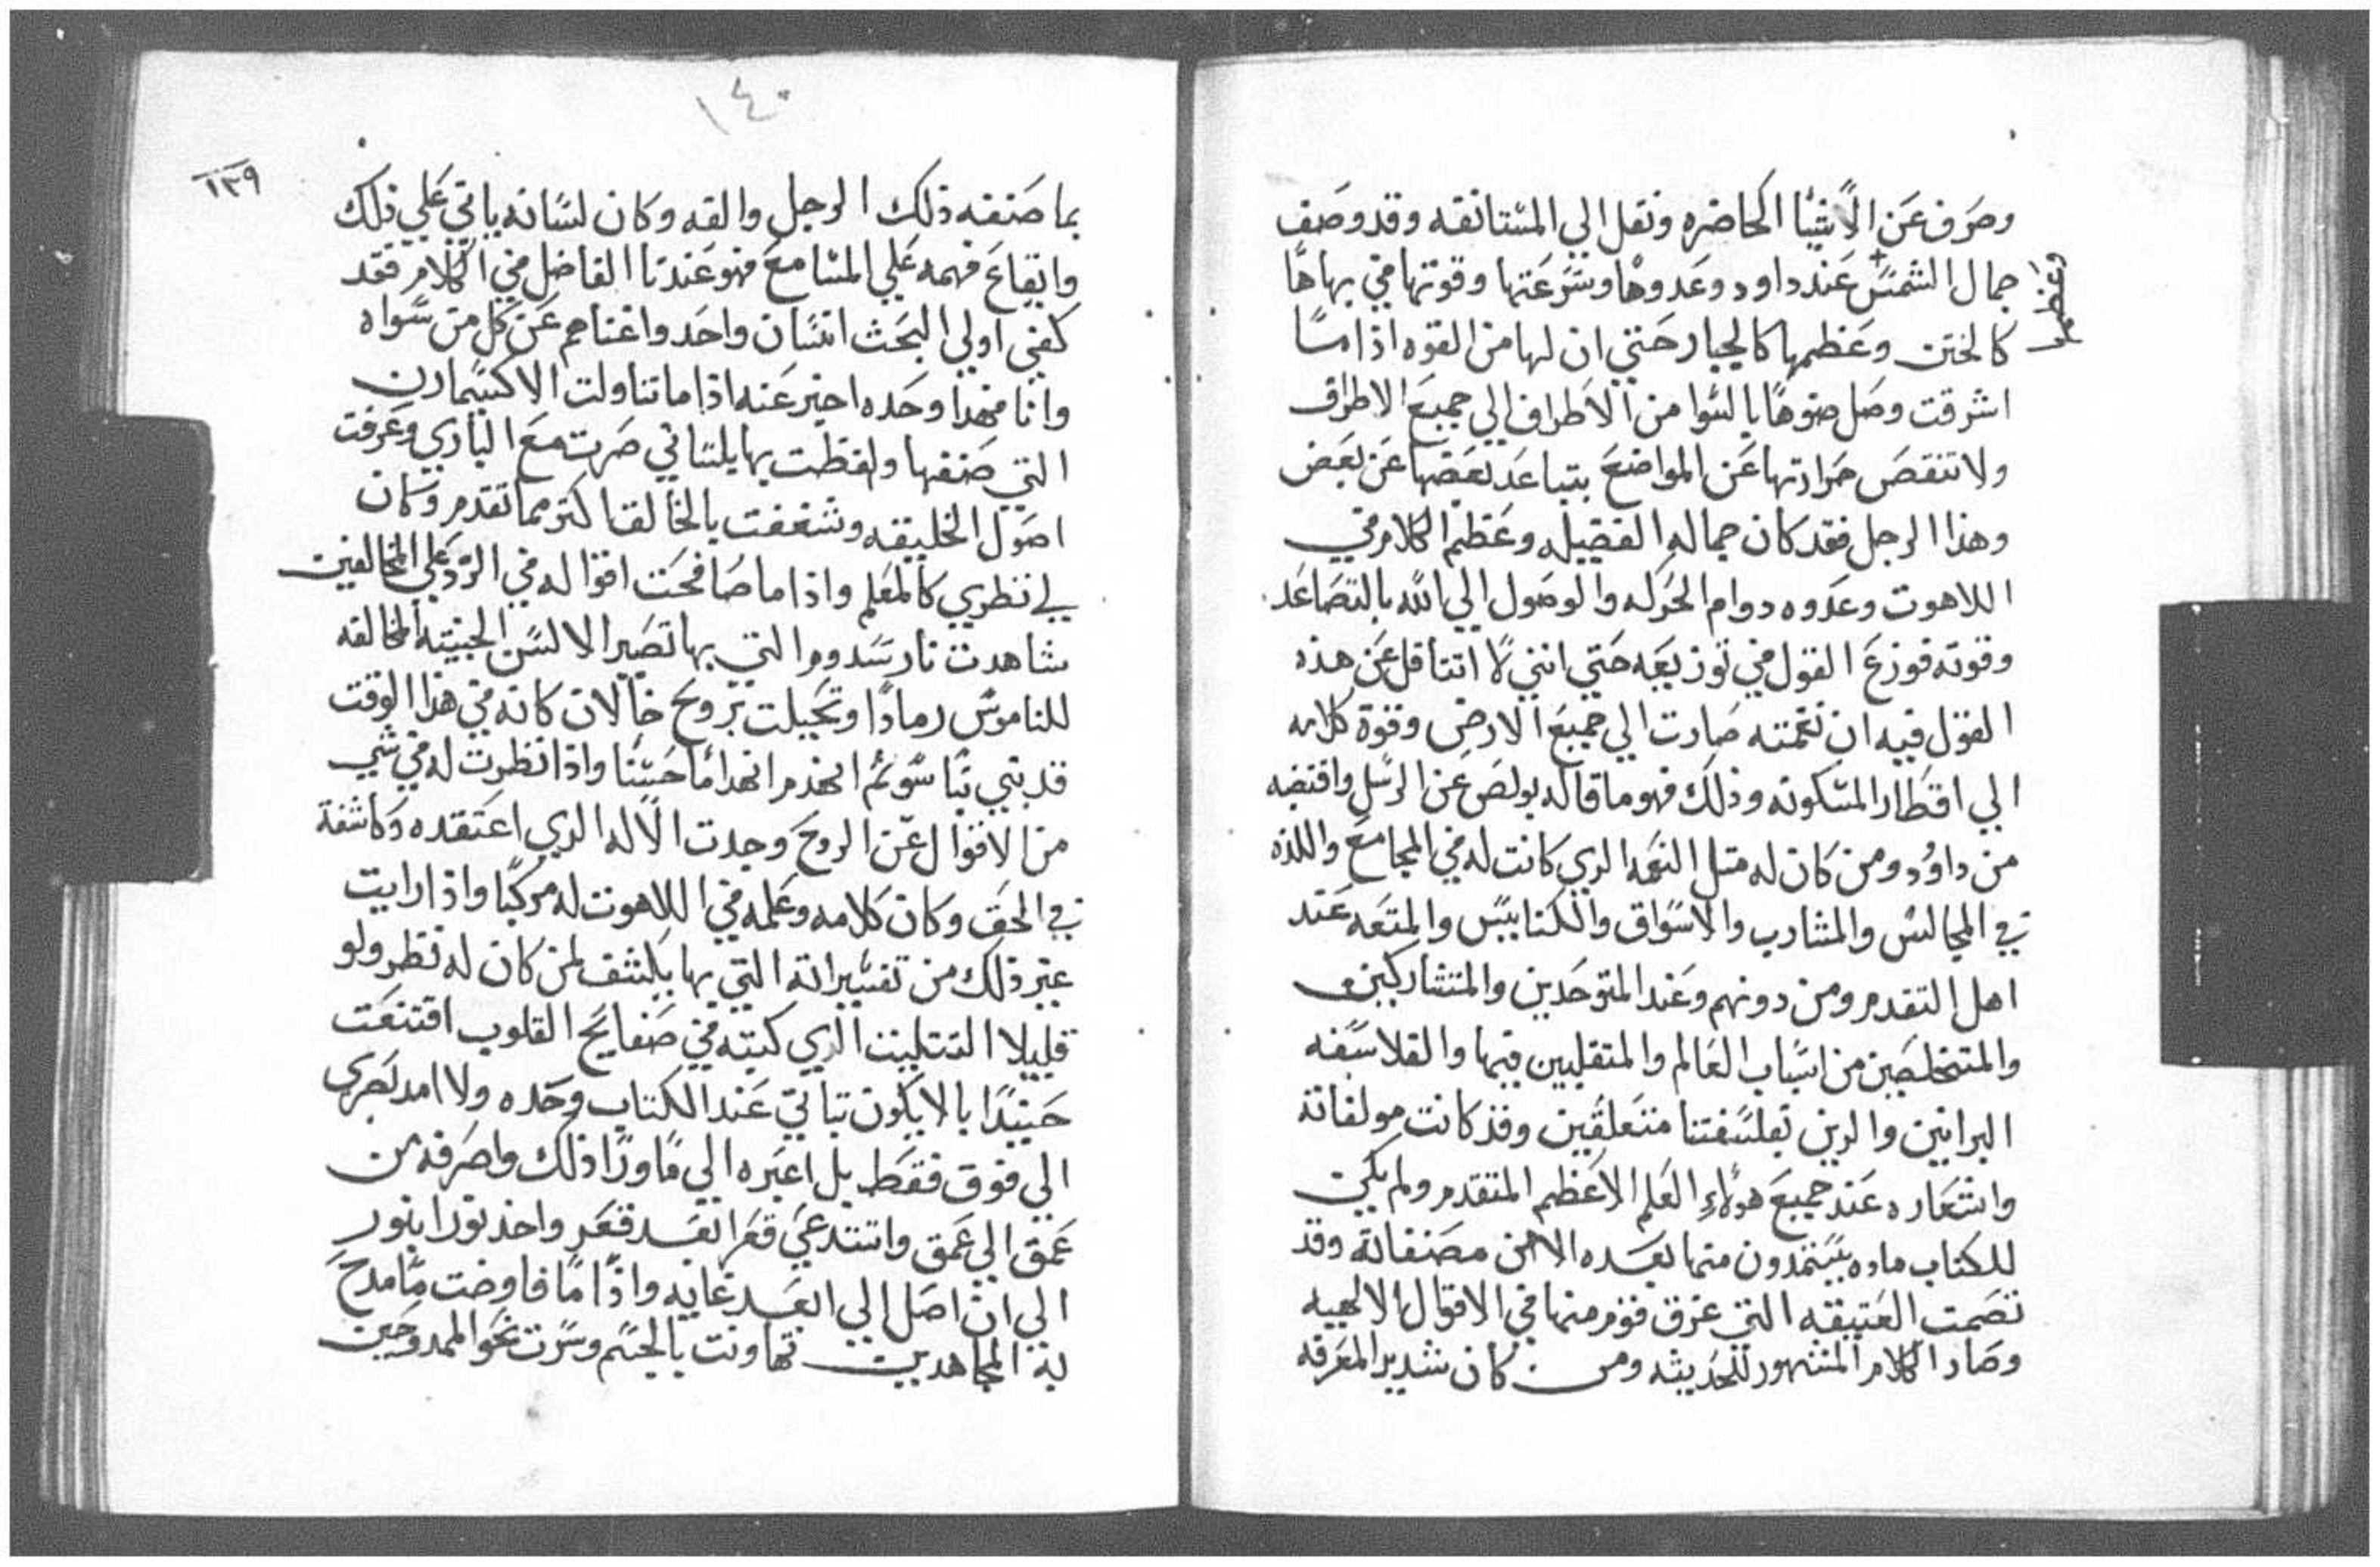 وصرف عن الاشيا الحاضره ونقل الي المستانفه وقد وصف
جمال الشمس عند داود وعدوها وسرعتها وقوتها في بهاها
وعظمها
كالختن وعظمها كالجبار حتي ان لها من القوه اذا ما
اشرقت وصل ضوها بالسوا من الاطراف الي جميع الاطراف
ولا تنقص حرارتها عن المواضع بتباعد بعضها عن بعض
وهذا الرجل فقد كان جماله الفضيله وعظم الكلام في
اللاهوت وعدوه دوام الحركه والوصول الي الله بالتصاعد
وقوته فوزع القول في توزيعه حتي انني لا اتثاقل عن هذه
القول فيه ان نغمته صارت الي جميع الارض وقوة كلامه
الي اقطار المسكونه وذلك فهو ما قاله بولص عن الرسل واقتضبه
من داوُد ومن كان له متل النعمه الذي كانت له في المجامع واللذه
في المجالس والمشارب والاسواق والكنايس والمتعه عند
اهل التقدم ومن دونهم وعند المتوحدين والمتشاركين
والمتخلصين من اسباب العالم والمتقلبين فيها والفلاسفه
البرانيين والدين بفلسفتنا متعلقين وقد كانت مولفاته
واشعاره عند جميع هولاء العلم الاعظم المتقدم ولم يكن
للكتاب ماده يستمدون منها بعده الا من مصنفاته وقد
تصمت العتيقه التي عرق قوم منها في الاقوال الالهيه
وصار الكلام المشهور للحديثه ومن كان شديد المعرفه
١٤٠
١٣٩
بما صنفه ذلك الرجل والفه وكان لسانه ياتي علي ذلك
وايقاع فهمه علي المسامع فهو عندنا الفاضل في الكلام فقد
كفي اولي البحث انسان واحد واغناهم عن كل من سواه
وانا فهذا وحده اخبر عنه اذا ما تناولت الاكسيمارن
التي صنفها ولفظت بها بلساني صرت مع الباري وعرفت
اصول الخليقه وشغفت بالخالق اكتر مما تقدم وكان
لي نظري كالمعلم واذا ما صافحت اقواله في الرد علي المخالفين
شاهدت نار سدوم التي بها تصير الالسن الخبيته المخالفه
للناموس رمادًا وتخيلت برج خالان كانه في هذا الوقت
قد بني بنا سو ثم انهدم انهدامًا حسنًا واذا نظرت له في شي
من الاقوال عن الروح وجدت الاله الدي اعتقده وكاشفة
في الحق وكان كلامه وعلمه في اللاهوت له مركبًا واذا رايت
غير ذلك من تفسيراته التي بها يكشف لمن كان له نظر ولو
قليلا التتليت الدي كتبه في صفايح القلوب اقتنعت
حينيدًا بالا يكون تباتي عند الكتاب وحده ولا امد بصري
الي فوق فقط بل اعبره الي ما ورا ذلك واصرفه من
عمق الي عمق واستدعي قعرا بعد قعر واخذ نورا بنور
الي ان اصل الي ابعد غايه واذا ما فاوضت مامدح
به المجاهدين تهاونت بالجسم وسرت نحو الممدوحين